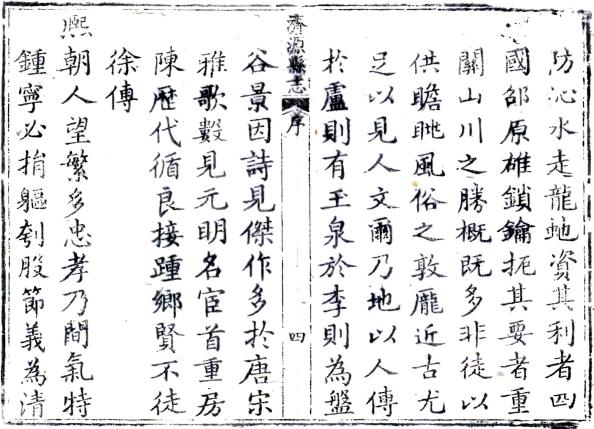 防沁水走龍虵資其利者四
國邵原雄鎖鑰扼其要者重
關山川之勝概既多非徒以
供瞻眺風俗之敦龐近古尤
足以見人文爾乃地以人傳
於盧則有玉泉於李則為盤
濟源縣志
序
四
谷景因詩見傑作多於唐宋
雅歌數見元明名宦首重房
陳歷代循良接踵鄉賢不徒
徐傅
熙朝人望繁多忠孝乃間氣特
鍾寧必捐軀刳股節義為清